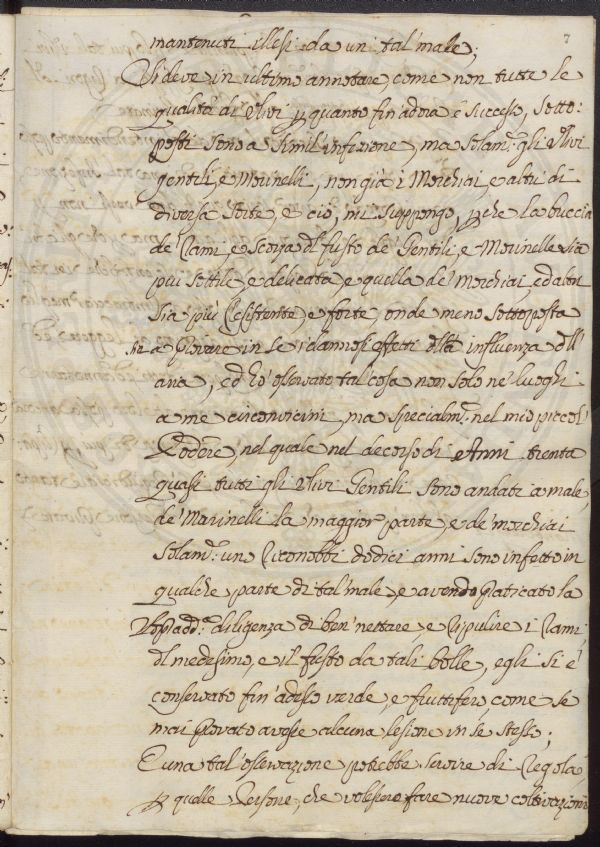 7
mantenuti illesi da un tal male;
Si deve in ultimo annotare, come non tutte le
qualità di Ulivi p quanto fin'adora è successo, sotto-
posti sono a simil'infezione, ma solam.te gli Ulivi
gentili, e Morinelli, non già i Morchiai, e altri di
diversa sorte, e ciò, mi suppongo, pche la buccia
de' Rami, e scorza dl fusto de' Gentili, e Morinelli sia
più sottile, e delicata, e quella de' Morchiai, ed altri
sia più resistente, e forte, onde meno sottoposta
sia a provare in se i dannosi effetti dlla influenza dll'
aria, ed ho osservato tal cosa non solo ne' luoghi
a me circonvicini, ma specialm.te nel mio piccol'
Podere, nel quale nel decorso di Anni trenta
quasi tutti gli Ulivi Gentili sono andati a male,
de' Marinelli la maggior parte, e de' morchiai
solam.te uno riconobbi dodici anni sono infetto in
qualche parte di tal male, e avendo praticato la
sopradd.a diligenza di ben nettare, e ripulire i Rami
dl medesimo, e il fusto da tali bolle, egli si è
conservato fin'adesso verde, e fruttifero, come se
mai provato avesse alcuna lesione in se stesso;
E una tal'osservazione potrebbe servire di regola
p quelle Persone, che volessero fare nuove coltivazioni